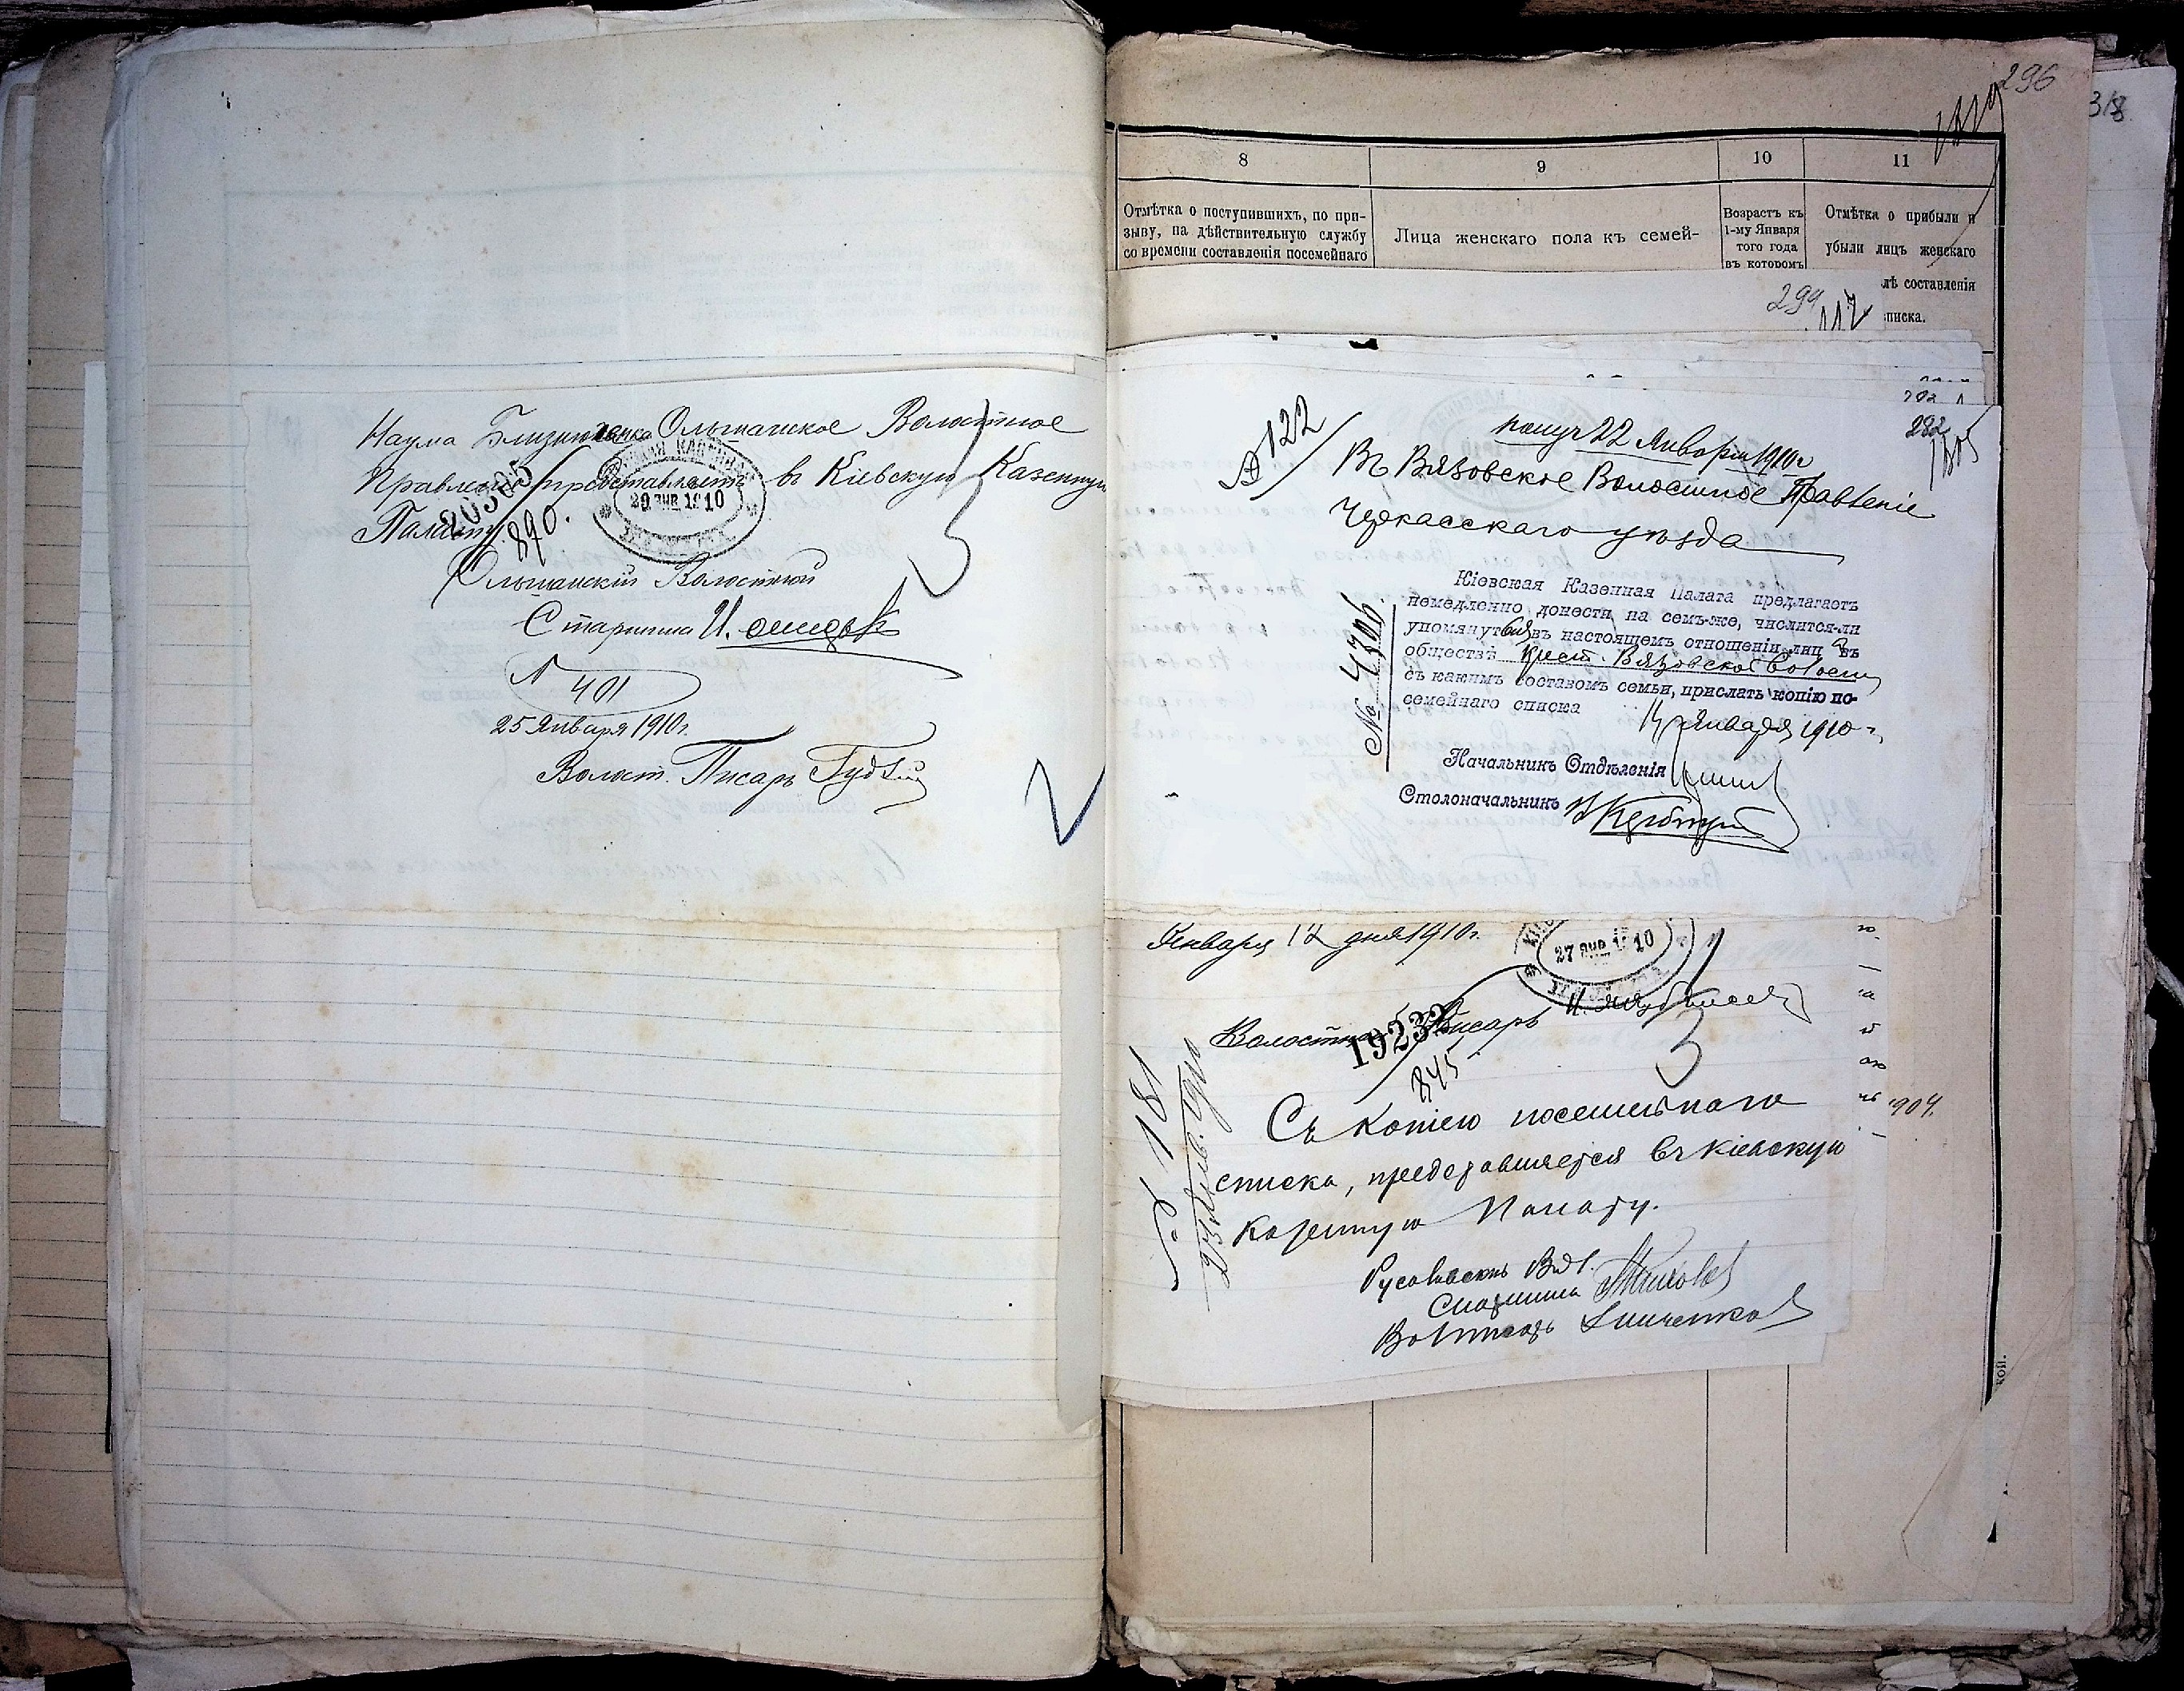 Наума Близнюченка Ольшанское Волостное
Правленіе представляетъ въ Кіевскую Казенную
Палату
20365
890.
29 ЯНВ 1910
Ольшанскій Волостной
Старшина И.
N 401
25 Января 1910 г.
Волост. Писарь
296
318
8
9
10
11
Отмѣтка о поступившихъ, по при-
зыву, на дѣйствительную службу
со времени составленія посемейнаго
Лица женскаго пола къ семей-
Возрастъ къ
1-му Января
того года
въ которомъ
Отмѣтка о прибыли и
убыли лицъ женскаго
лѣ составленія
писка.
299
117
282
1305
№ 122
получ 22 Января 1910 г
Въ Вязовское Волостное Правленіе
Черкасскаго уѣзда
№ 4306.
Кіевская Казенная Палата предлагаетъ
немедленно донести на семъ-же, числится-ли
упомянутыя въ настоящемъ отношеніи лица въ
обществѣ крест. Вязовской волости
съ какимъ составомъ семьи, прислать копію по-
семейнаго списка
Января 1910 г.
Начальникъ Отдѣленія
Столоначальникъ
Января 12 дня 1910 г.
27 ЯНВ 1910
Волостной Писарь
19232
845
1904.
№ 181
23 Янв. 1910
Съ копіею посемейнаго
списка, представляется въ Кіевскую
Казенную Палату.
Русаловскій Вол.
Старшина
Вол писарь